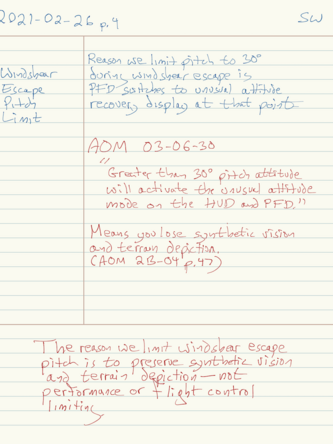 2021-02-26 p.4
SW
Windshear
Escape
Pitch
Limit
Reason we limit pitch to 30°
during windshear escape is
PFD switches to unusual attitude
recovery display at that point.
AOM 03-06-30
"
Greater than 30° pitch attitude
will activate the unusual attitude
mode on the HUD and PFD."
Means you lose synthetic vision
and terrain depiction.
(AOM 2B-04 p.47)
The reason we limit windshear escape
pitch is to preserve synthetic vision
and terrain depiction—not
performance or flight control
limiting